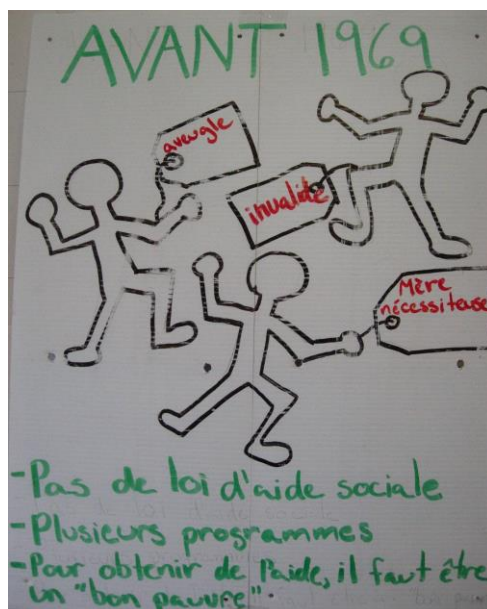 AVANT 1969
aveugle
invalide
Mère
nécessiteuse
-Pas de loi d'aide sociale
-Plusieurs programmes
-Pour obtenir de l'aide, il faut être
un "bon pauvre".